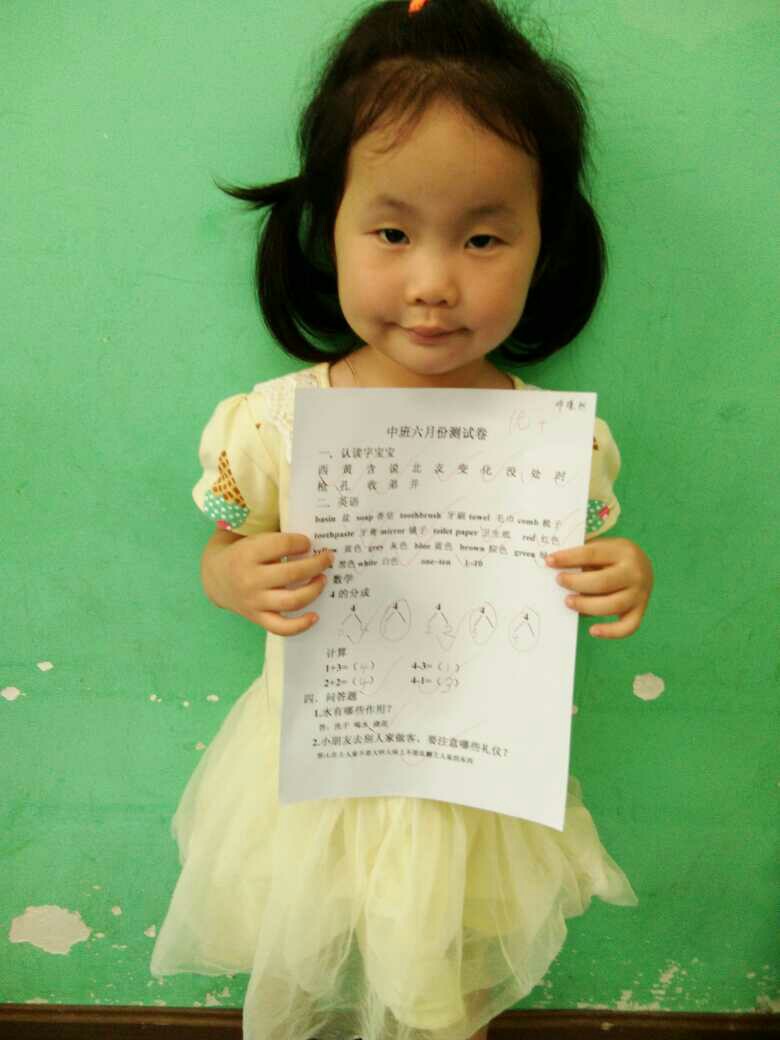 优
中班六月份测试卷
一、认读字宝宝
西 黄 含 说 北 友 变 化 没 处 时
枪 孔 收 弟 并
二、英语
basin 盆 soap 香皂 toothbrush 牙刷 towel 毛巾 comb 梳子
toothpaste 牙膏 mirror 镜子 toilet paper 卫生纸 red 红色
yellow 黄色 grey 灰色 blue 蓝色 brown 棕色 green
黑色 white 白色 one-ten 1-10
数学
4 的分成
4 4 4 4 4
计算
1+3=(4) 4-3=(1)
2+2=(4) 4-1=(3)
四、问答题
1.水有哪些作用?
答:洗手 喝水 浇花
2.小朋友去别人家做客,要注意哪些礼仪?